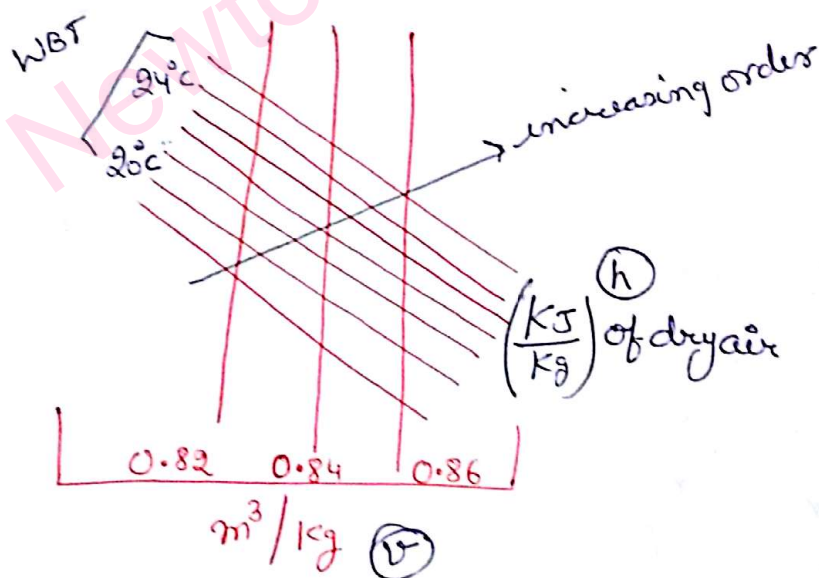 WBT
24°C
20°C
increasing order
h
(KJ/Kg) of dry air
0.82 0.84 0.86
m³/Kg v
Newto